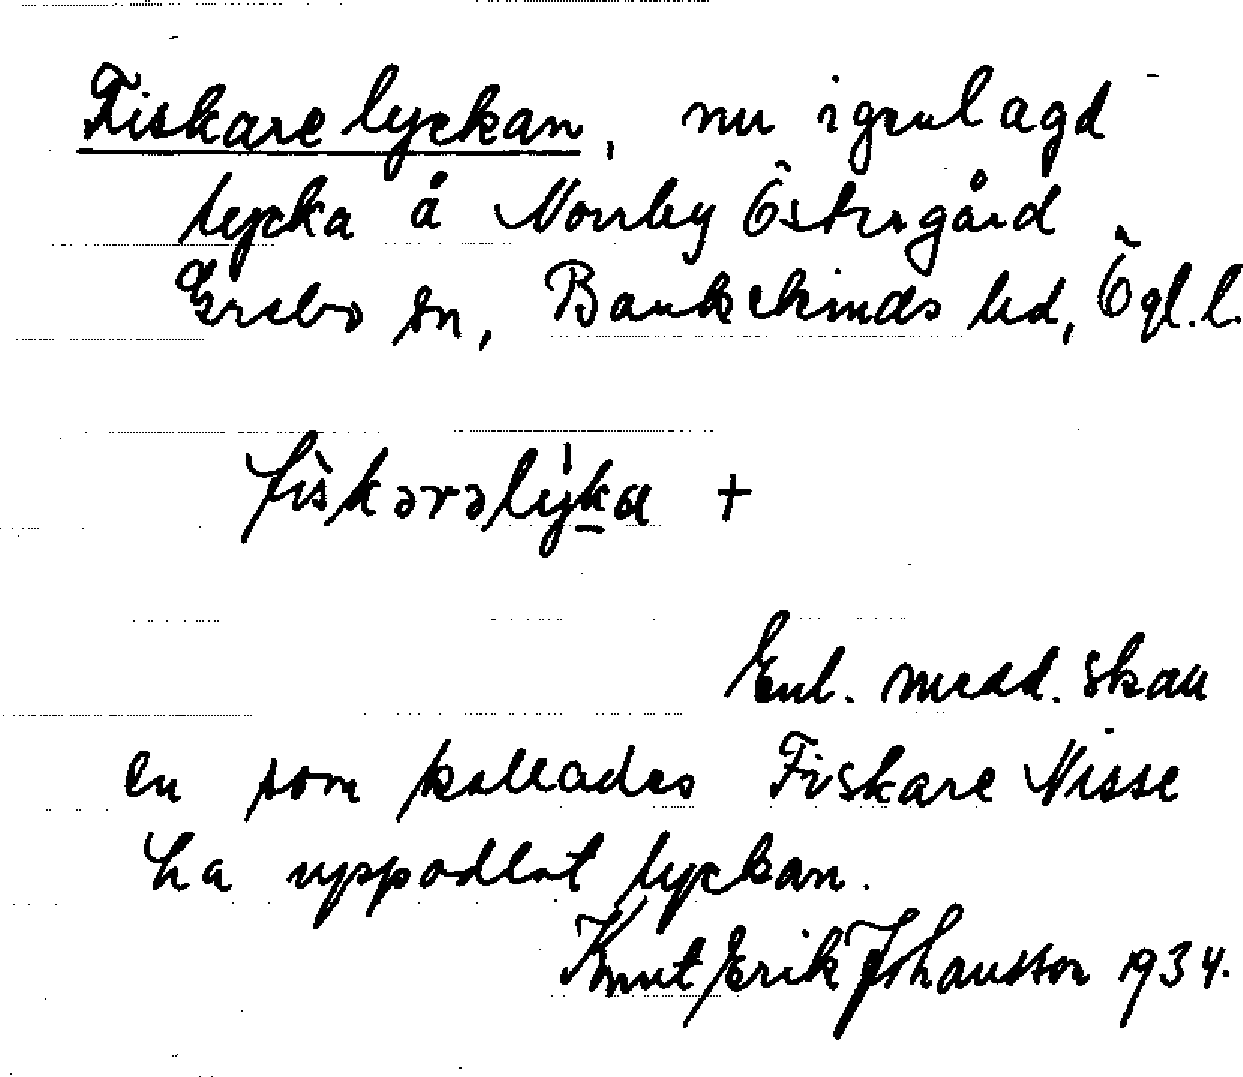 Fiskarelyckan, nu igenlagd
lycka å Norrby Östergård
Gersbo sn, Bankekinds hd, Ögl.l.
fìskərəlýka +
Enl. medd. skall
en som kallades Fiskare Nisse
ha uppodlat lyckan.
Knut Erik Johansson 1934.